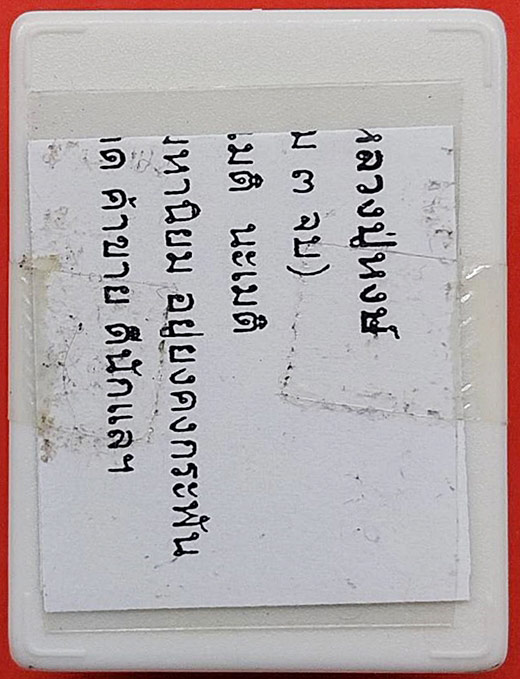 หลวงปู่หงษ์
ม ๓ จบ)
เมติ นะเมติ
มหานิยม อยู่ยงคงกระพัน
ด ค้าขาย ดีนักแลฯ